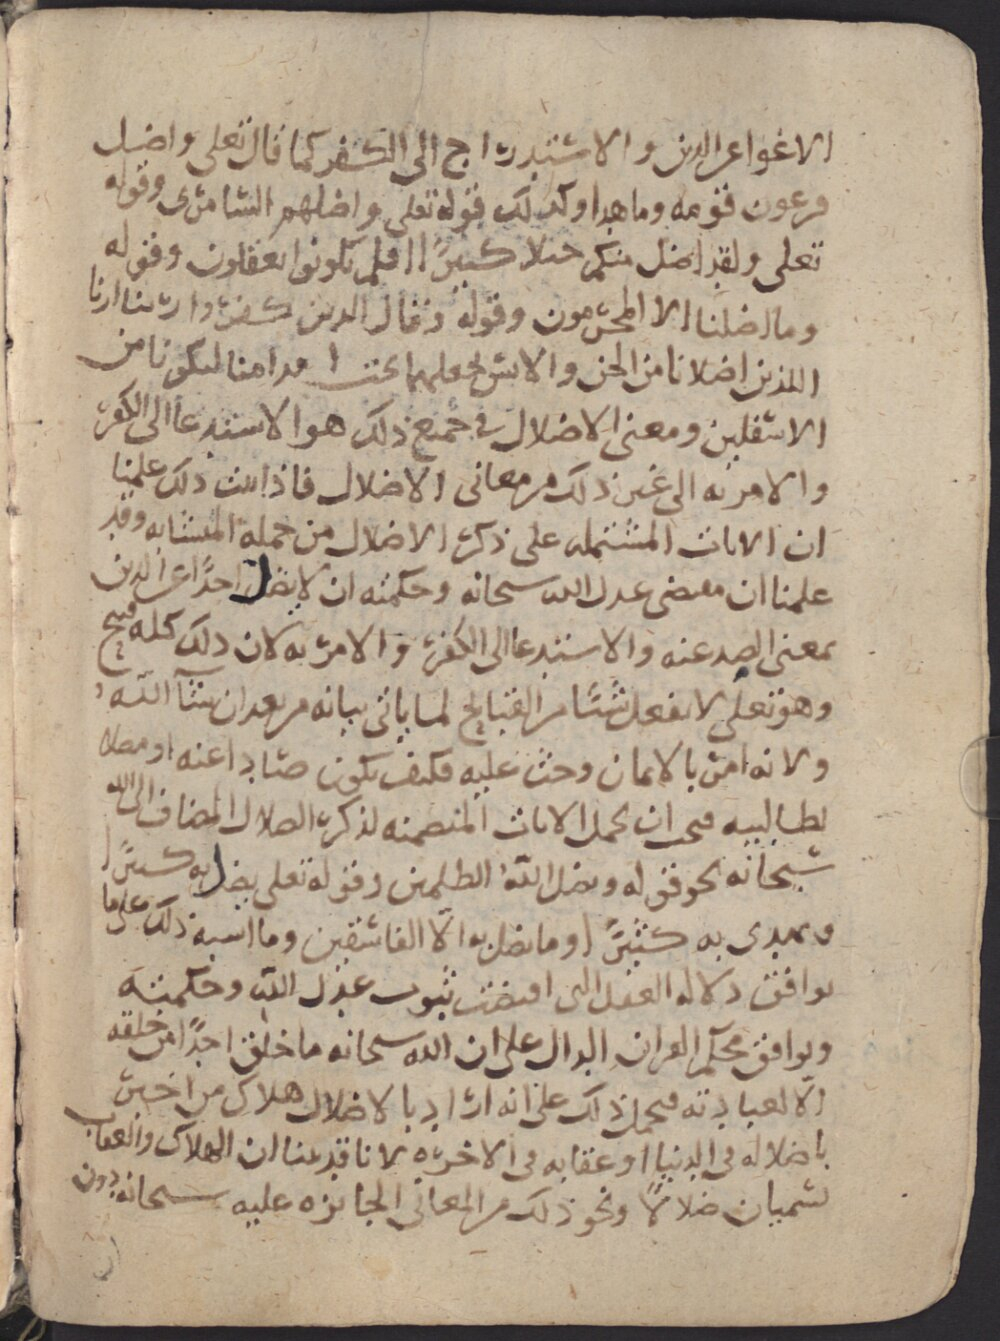 الاغواء عن الدين والاستدراج الى الكفر كما قال تعلى واضل
فرعون قومه وما هدا وكذلك قوله تعلى واضلهم السامرى وقوله
تعلى ولقد اضل منكم جبلا كثيرًا افلم تكونوا تعقلون وقوله
وما اضلنا الا المجرمون وقوله وقال الذين كفروا ربنا ارنا
اللذين اضلانا من الجن والانس نجعلهما تحت اقدامنا ليكونا من
الاسفلين ومعنى الاضلال في جميع ذلك هو الاستدعا الى الكفر
والامر به الى غير ذلك من معانى الاضلال فاذا ثبت ذلك علمنا
ان الايات المشتمله على ذكر الاضلال من جملة المتشابه وقد
علمنا ان مقتضى عدل الله سبحانه وحكمته ان لا يضل احدًا عن الدين
بمعنى الصد عنه والاستدعا الى الكفر والامر به لان ذلك كله قبيح
وهو تعلى لا يفعل شيًا من القبايح لما ياتى بيانه من بعد ان شآ الله
ولانه امر بالايمان وحث عليه فكيف يكون صادا عنه او مضلا
لطالبيه فيجب ان تحمل الايات المتضمنه لذكر الضلال المضاف الى الله
سبحانه نحو قوله ويضل الله الظلمين وقوله تعلى يضل به كثيرًا
ويهدى به كثيرًا وما يضل به الا الفاسقين وما اشبه ذلك على ما
يوافق دلالة العقل التى اقتضت ثبوت عدل الله وحكمته
ويوافق محكم القران الدال على ان الله سبحانه ما خلق احدًا من خلقه
الا لعبادته فيحمل ذلك على انه اراد بالاضلال هلاك من اخبر
باضلاله فى الدنيا او عقابه فى الاخره لانا قد بينا ان الهلاك والعقاب
يسميان ضلالًا ونحو ذلك من المعانى الجائزه عليه سبحانه دون